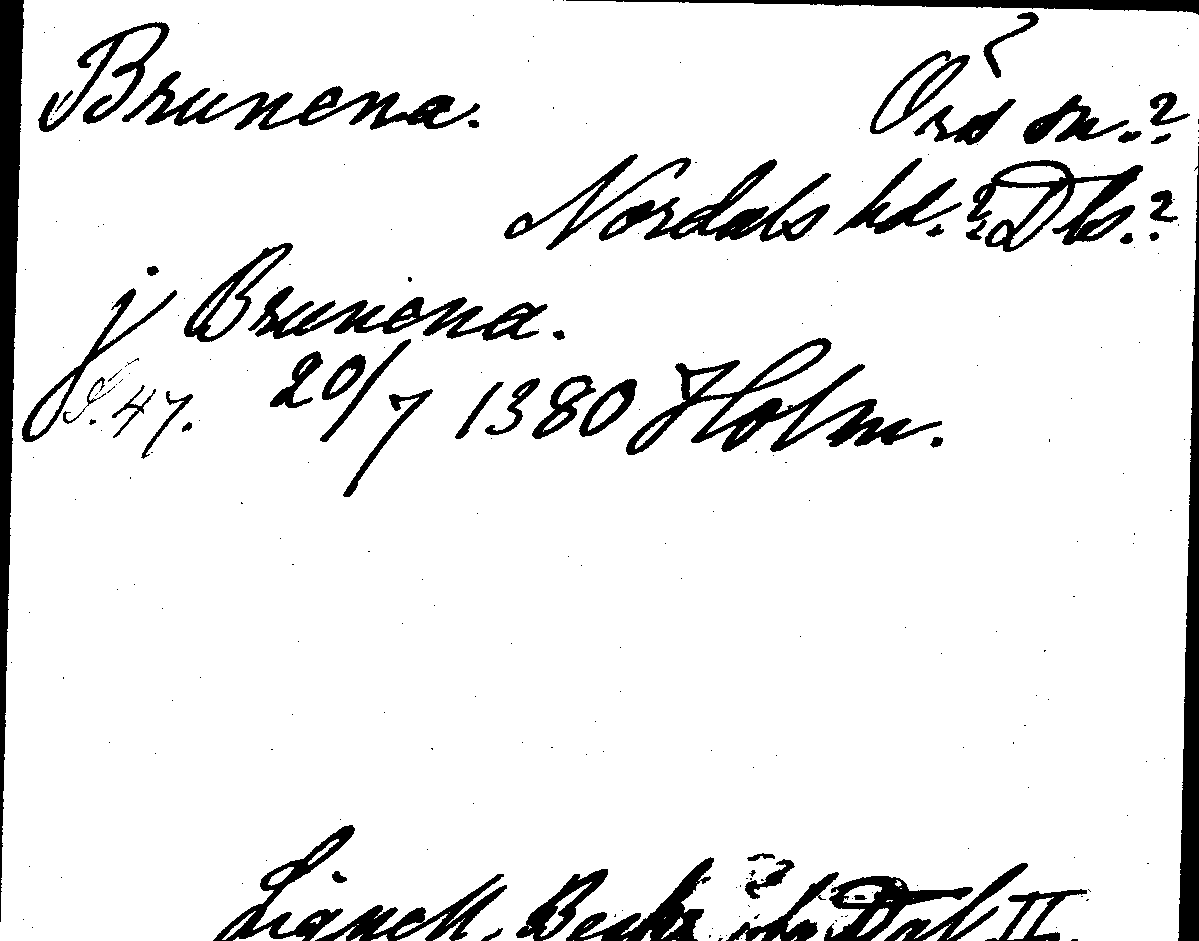 Brunena. Örs sn.?
Nordals hd.? Dls.?
j Brunena.
S. 47. 20/7 1380 Holm.
Lignell, Beskr. Dal II